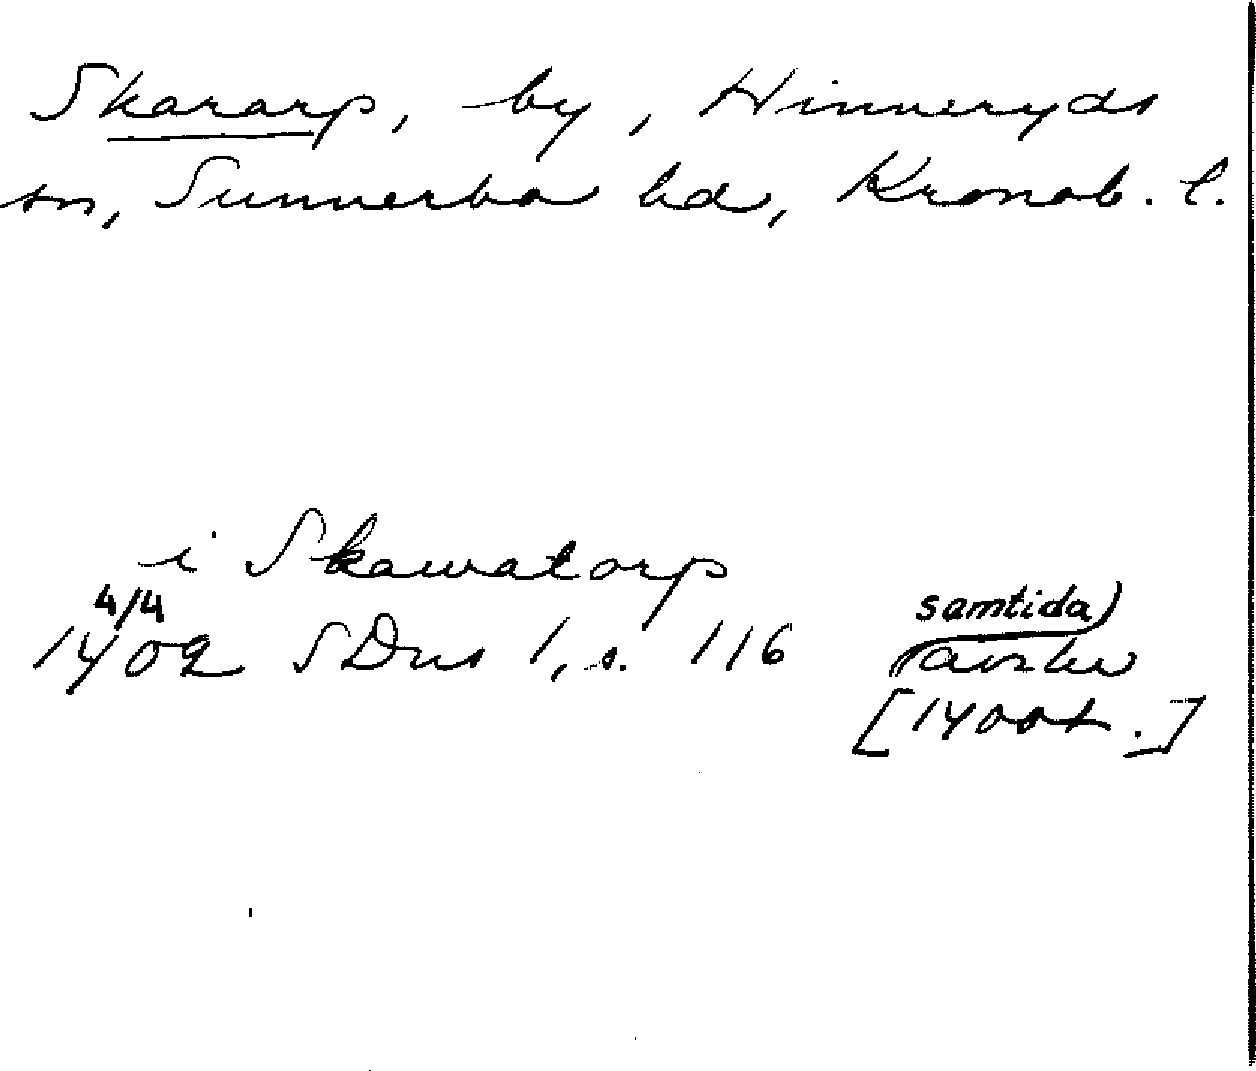 Skararp, by, Hinneryds
sn, Sunnerbo hd, Kronob. l.
i Skawatorp
4/4
1402 SDns 1, s. 116
samtida)
avskr
[1400t.]